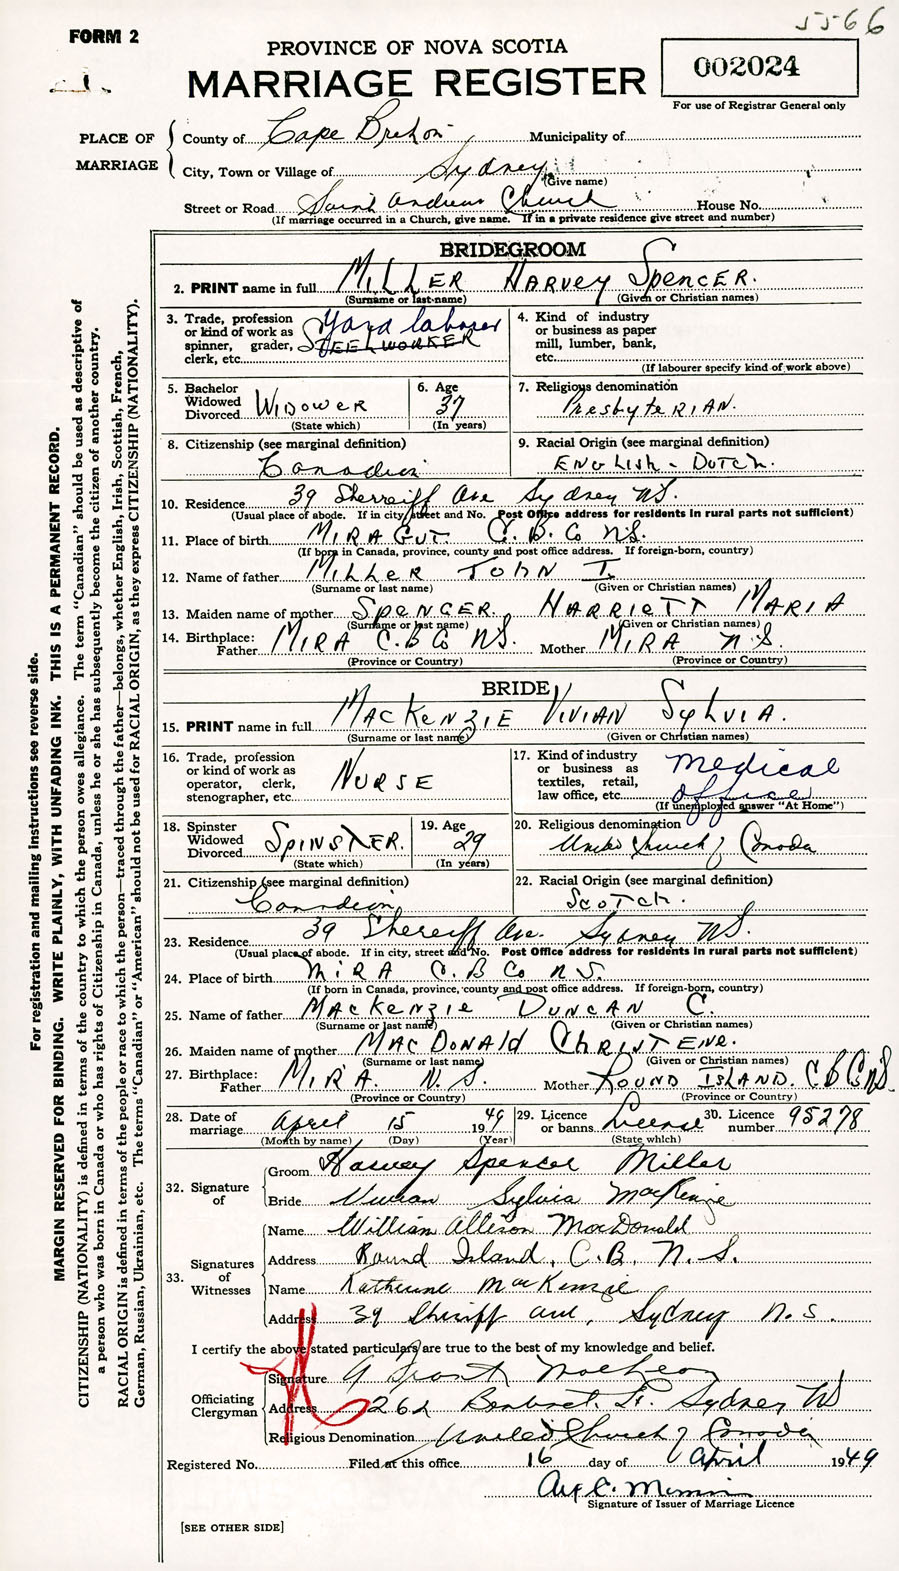 5566
FORM 2
PROVINCE OF NOVA SCOTIA
MARRIAGE REGISTER
002024
For use of Registrar General only
PLACE OF MARRIAGE
County of Cape Breton Municipality of
City, Town or Village of Sydney
(Give name)
Street or Road Saint Andrews Church House No.
(If marriage occurred in a Church, give name. If in a private residence give street and number)
BRIDEGROOM
2. PRINT name in full MILLER HARVEY SPENCER.
(Surname or last name) (Given or Christian names)
3. Trade, profession or kind of work as spinner, grader, clerk, etc. Yard laborer STEELWORKER
4. Kind of industry or business as paper mill, lumber, bank, etc.
(If labourer specify kind of work above)
5. Bachelor Widowed Divorced WIDOWER
(State which)
6. Age 37
(In years)
7. Religious denomination PresbyteRIAN.
8. Citizenship (see marginal definition) Canadian
9. Racial Origin (see marginal definition) ENGLISH - DUTCH.
10. Residence 39 Sherriff Ave Sydney NS.
(Usual place of abode. If in city, street and No. Post Office address for residents in rural parts not sufficient)
11. Place of birth MIRA GUT C.B. Co NS.
(If born in Canada, province, county and post office address. If foreign-born, country)
12. Name of father MILLER JOHN I.
(Surname or last name) (Given or Christian names)
13. Maiden name of mother SPENCER. HARRIETT MARIA
(Surname or last name) (Given or Christian names)
14. Birthplace: Father MIRA C.B Co NS. Mother MIRA N.S.
(Province or Country) (Province or Country)
BRIDE
15. PRINT name in full MACKENZIE VIVIAN SYLVIA.
(Surname or last name) (Given or Christian names)
16. Trade, profession or kind of work as operator, clerk, stenographer, etc. NURSE
17. Kind of industry or business as textiles, retail, law office, etc. Medical office
(If unemployed answer "At Home")
18. Spinster Widowed Divorced SPINSTER.
(State which)
19. Age 29
(In years)
20. Religious denomination United Church of Canada
21. Citizenship (see marginal definition) Canadian
22. Racial Origin (see marginal definition) SCOTCH.
23. Residence 39 Shereiff Ave. Sydney NS.
(Usual place of abode. If in city, street and No. Post Office address for residents in rural parts not sufficient)
24. Place of birth MIRA C.B Co N.S.
(If born in Canada, province, county and post office address. If foreign-born, country)
25. Name of father MACKENZIE DUNCAN C.
(Surname or last name) (Given or Christian names)
26. Maiden name of mother MACDONALD CHRISTENE.
(Surname or last name) (Given or Christian names)
27. Birthplace: Father MIRA. N.S. Mother ROUND ISLAND. C B Co NS.
(Province or Country) (Province or Country)
28. Date of marriage April 15 1949
(Month by name) (Day) (Year)
29. Licence or banns License
(State which)
30. Licence number 95278
32. Signature of
Groom Harvey Spencer Miller
Bride Vivian Sylvia MacKenzie
33. Signatures of Witnesses
Name William Allison MacDonald
Address Round Island, C.B. N.S.
Name Katherine MacKenzie
Address 39 Sheriff ave, Sydney N.S.
I certify the above stated particulars are true to the best of my knowledge and belief.
Officiating Clergyman
Signature Grant MacLean
Address 262 St. Sydney NS
Religious Denomination United Church of Canada
Registered No. Filed at this office 16 day of April 1949
Signature of Issuer of Marriage Licence
[SEE OTHER SIDE]
For registration and mailing instructions see reverse side.
MARGIN RESERVED FOR BINDING. WRITE PLAINLY, WITH UNFADING INK. THIS IS A PERMANENT RECORD.
CITIZENSHIP (NATIONALITY) is defined in terms of the country to which the person owes allegiance. The term "Canadian" should be used as descriptive of
a person who was born in Canada or who has rights of Citizenship in Canada, unless he or she has subsequently become the citizen of another country.
RACIAL ORIGIN is defined in terms of the people or race to which the person—traced through the father—belongs, whether English, Irish, Scottish, French,
German, Russian, Ukrainian, etc. The terms "Canadian" or "American" should not be used for RACIAL ORIGIN, as they express CITIZENSHIP (NATIONALITY).